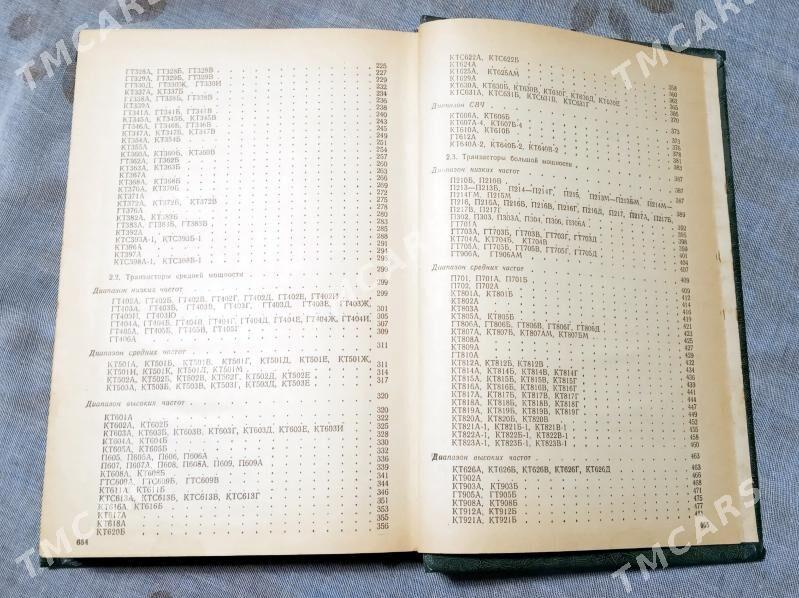 ГТ328А, ГТ328Б, ГТ328В 225
ГТ329А, ГТ329Б, ГТ329В 227
ГТ330Д, ГТ330Ж, ГТ330И 229
КТ337А, КТ337Б 232
ГТ338А, ГТ338Б, ГТ338В 234
КТ339А 236
ГТ341А, ГТ341Б, ГТ341В 238
КТ345А, КТ345Б, КТ345В 240
ГТ346А, ГТ346Б, ГТ346В 243
КТ347А, КТ347Б, КТ347В 245
КТ354А, КТ354Б 247
КТ355А 251
КТ360А, КТ360Б, КТ360В 254
ГТ362А, ГТ362Б 257
КТ363А, КТ363Б 260
КТ367А 262
КТ368А, КТ368Б
КТ370А, КТ370Б
КТ371А
КТ372А, КТ372Б, КТ372В
ГТ376А
КТ382А, КТ382Б
ГТ383А, ГТ383Б, ГТ383В
КТ392А
КТС393А-1, КТС393Б-1
КТ396А
КТ397А
КТС398А-1, КТС398Б-1
2.2. Транзисторы средней мощности 299
Диапазон низких частот 299
ГТ402А, ГТ402Б, ГТ402В, ГТ402Г, ГТ402Д, ГТ402Е, ГТ402И
ГТ403А, ГТ403Б, ГТ403В, ГТ403Г, ГТ403Д, ГТ403Е, ГТ403Ж,
ГТ403И, ГТ403Ю 301
ГТ404А, ГТ404Б, ГТ404В, ГТ404Г, ГТ404Д, ГТ404Е, ГТ404Ж, ГТ404И 305
ГТ405А, ГТ405Б, ГТ405В, ГТ405Г 307
ГТ406А 309
Диапазон средних частот 311
КТ501А, КТ501Б, КТ501В, КТ501Г, КТ501Д, КТ501Е, КТ501Ж,
КТ501И, КТ501К, КТ501Л, КТ501М 311
КТ502А, КТ502Б, КТ502В, КТ502Г, КТ502Д, КТ502Е 314
КТ503А, КТ503Б, КТ503В, КТ503Г, КТ503Д, КТ503Е 317
Диапазон высоких частот 320
КТ601А 320
КТ602А, КТ602Б 322
КТ603А, КТ603Б, КТ603В, КТ603Г, КТ603Д, КТ603Е, КТ603И
КТ604А, КТ604Б
КТ605А, КТ605Б
П605, П605А, П606, П606А
П607, П607А, П608, П608А, П609, П609А
КТ608А, КТ608Б
ГТС609А, ГТС609Б, ГТС609В
КТ611А, КТ611Б
КТС613А, КТС613Б, КТС613В, КТС613Г
КТ616А, КТ616Б
КТ617А
КТ618А
КТ620Б 356
654
КТС622А, КТС622Б
КТ624А
КТ625А, КТ625АМ
КТ629А
КТ630А, КТ630Б, КТ630В, КТ630Г, КТ630Д, КТ630Е
КТС631А, КТС631Б, КТС631В, КТС631Г
Диапазон СВЧ
КТ606А, КТ606Б
КТ607А-4, КТ607Б-4
КТ610А, КТ610Б
ГТ612А
КТ640А-2, КТ640Б-2, КТ640В-2
2.3. Транзисторы большой мощности
Диапазон низких частот
П210Б, П210В
П213—П213Б, П214—П214Г, П215, П213М—П213БМ, П214М—
П214ГМ, П215М
П216, П216А, П216Б, П216В, П216Г, П216Д, П217, П217А, П217Б,
П217В, П217Г
П302, П303, П303А, П304, П306, П306А
ГТ701А
ГТ703А, ГТ703Б, ГТ703В, ГТ703Г, ГТ703Д
КТ704А, КТ704Б, КТ704В
ГТ705А, ГТ705Б, ГТ705В, ГТ705Г, ГТ705Д
ГТ906А, ГТ906АМ
Диапазон средних частот
П701, П701А, П701Б
П702, П702А
КТ801А, КТ801Б
КТ802А
КТ803А
КТ805А, КТ805Б
ГТ806А, ГТ806Б, ГТ806В, ГТ806Г, ГТ806Д
КТ807А, КТ807Б, КТ807АМ, КТ807БМ
КТ808А
КТ809А
ГТ810А
КТ812А, КТ812Б, КТ812В
КТ814А, КТ814Б, КТ814В, КТ814Г
КТ815А, КТ815Б, КТ815В, КТ815Г
КТ816А, КТ816Б, КТ816В, КТ816Г
КТ817А, КТ817Б, КТ817В, КТ817Г
КТ818А, КТ818Б, КТ818В, КТ818Г
КТ819А, КТ819Б, КТ819В, КТ819Г
КТ820А, КТ820Б, КТ820В
КТ821А-1, КТ821Б-1, КТ821В-1
КТ822А-1, КТ822Б-1, КТ822В-1
КТ823А-1, КТ823Б-1, КТ823В-1 460
Диапазон высоких частот 463
КТ626А, КТ626Б, КТ626В, КТ626Г, КТ626Д 463
КТ902А
КТ903А, КТ903Б
ГТ905А, ГТ905Б
КТ908А, КТ908Б
КТ912А, КТ912Б
КТ921А, КТ921Б
TMCARS